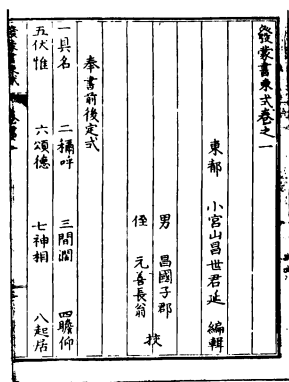 發蒙書柬式卷之一
東都 小宮山昌世君延 編輯
男 昌國子郡
姪 元善長翁 挍
奉書前後定式
一具名 二稱呼 三間濶 四瞻仰
五伏惟 六頌德 七神相 八起居